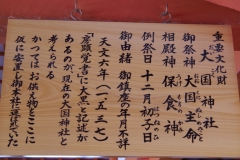 重要文化財
大国神社
御祭神 大国主命
相殿神 保食神
例祭日 十二月初子日
御由緒 御鎮座の年月不詳
天文六年(一五三七)
「産頭覚書」に大黒と記述が
あるのが、現在の大国神社と
考えられる
かつては、お供え物をここに
仮に安置し御本社に運んでいた